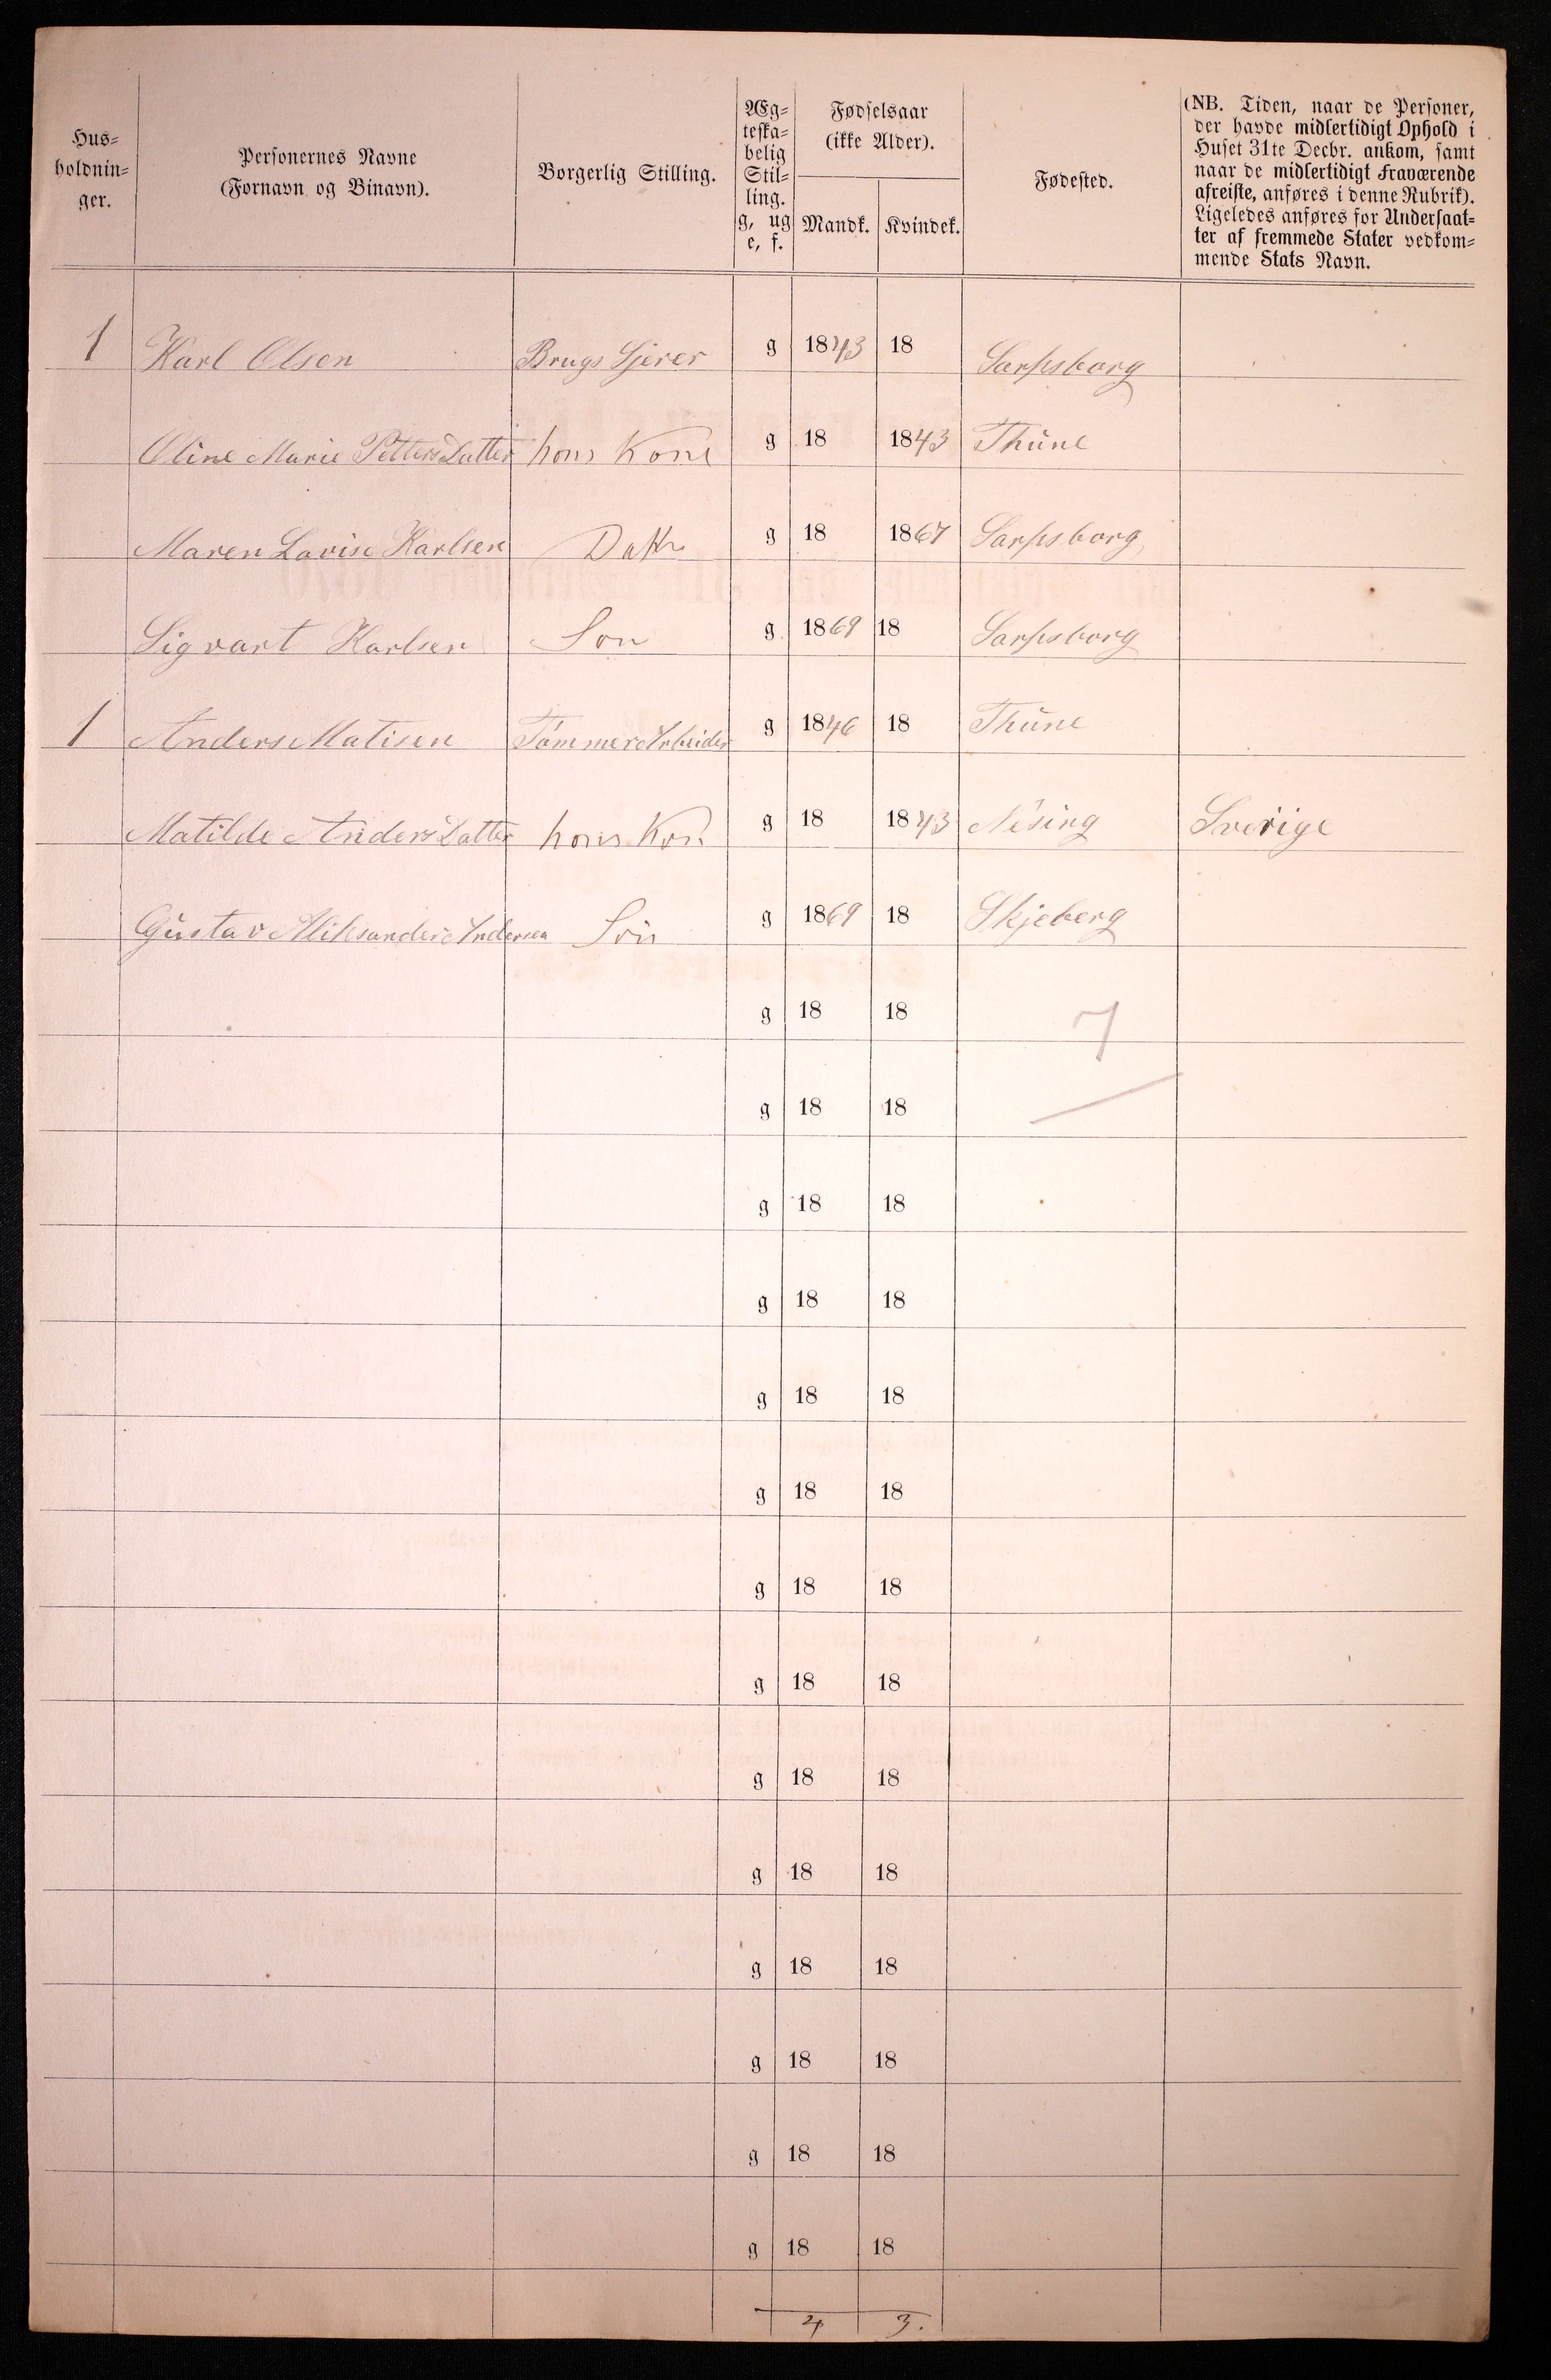 Hus=
holdnin=
ger.
Personernes Navne
(Fornavn og Binavn).
Borgerlig Stilling.
Æg=
teska=
belig
Stil=
ling.
g, ug
e, f.
Fødselsaar
(ikke Alder).
Mandk. Kvindek.
Fødested.
(NB. Tiden, naar de Personer,
der havde midlertidigt Ophold i
Huset 31te Decbr. ankom, samt
naar de midlertidigt Fraværende
afreiste, anføres i denne Rubrik).
Ligeledes anføres for Undersaat=
ter af fremmede Stater vedkom=
mende Stats Navn.
1 Karl Olsen Brugs g 1843 18 Sarpsborg
Oline Marie Petters Datter hans Kone g 18 1843 Thune
Maren Lovise Karlsen Datr g 18 1867 Sarpsborg
Sigvart Karlsen Son g 1869 18 Sarpsborg
1 Anders Matisen Tømmer Arbeider g 1846 18 Thune
Matilde Anders Datter hans Kon g 18 1843 Nésing Sverige
Gustav Aliksander Andersen Sön g 1869 18 Skjeberg
g 18 18 7
g 18 18
g 18 18
g 18 18
g 18 18
g 18 18
g 18 18
g 18 18
g 18 18
g 18 18
g 18 18
g 18 18
g 18 18
g 18 18
4 3.